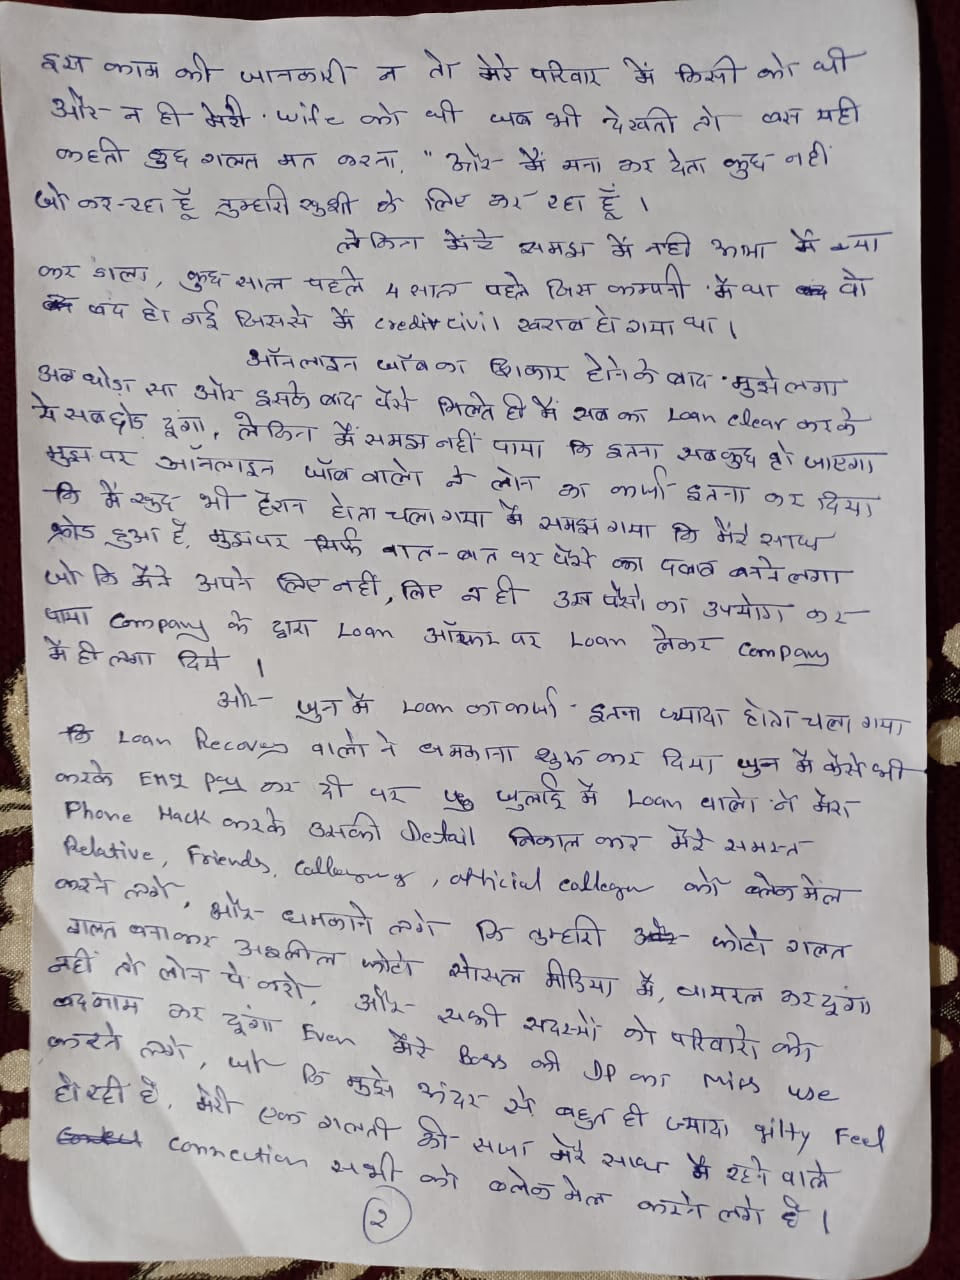 इस काम की जानकारी न तो मेरे परिवार में किसी को थी
और न ही मेरी wife को थी जब भी देखती तो बस यही
कहती कुछ गलत मत करना, " और मैं मना कर देता कुछ नहीं
जो कर रहा हूँ तुम्हारी खुशी के लिए कर रहा हूँ ।
लेकिन मेरे समझ में नही आया मैं क्या
कर डाला, कुछ साल पहले 4 साल पहले जिस कम्पनी में था वो
बंद हो गई जिससे में credit civil खराब हो गया था ।
ऑनलाइन जॉब का शिकार होने के बाद मुझे लगा
अब थोड़ा सा और इसके बाद पैसे मिलते ही में सब का Loan clear करके
ये सब छोड़ दूंगा, लेकिन में समझ नहीं पाया कि इतना सब कुछ हो जाएगा
मुझ पर ऑनलाइन जॉब वालो ने लोन का कर्जा इतना कर दिया
कि मैं खुद भी हैरान होता चला गया में समझ गया कि मेरे साथ
फ्रोड हुआ है, मुझ पर सिर्फ बात-बात पर पैसे का दबाब बनने लगा
जो कि मैंने अपने लिए नहीं, लिए न ही उस पैसो का उपयोग कर
पाया Company के द्वारा Loan ऑफर पर Loan लेकर company
में ही लगा दिये ।
और जुन में Loan का कर्जा इतना ज्यादा होता चला गया
कि Loan Recovery वालो ने धमकाना शुरू कर दिया जुन में कैसे भी
करके EMI Pay कर दी पर जुलाई में Loan वालो ने मेरा
Phone Hack करके उसकी Detail निकाल कर मेरे समस्त
Relative, Friends, official को ब्लेकमेल
करने लगे, और धमकाने लगे कि तुम्हारी फोटो गलत
गलत बनाकर अश्लील फोटो सोसल मीडिया में, वायरल कर दूंगा
नहीं तो लोन पे करो, और सभी सदस्यों को परिवारो को
बदनाम कर दूंगा Even मेरे Boss की DP का miss use
करने लगे, जो कि मुझे अंदर से बहुत ही ज्यादा gilty Feel
हो रही है, मेरी एक गलती की सजा मेरे साथ में रहने वाले
connection सभी को ब्लेकमेल करने लगे है ।
२